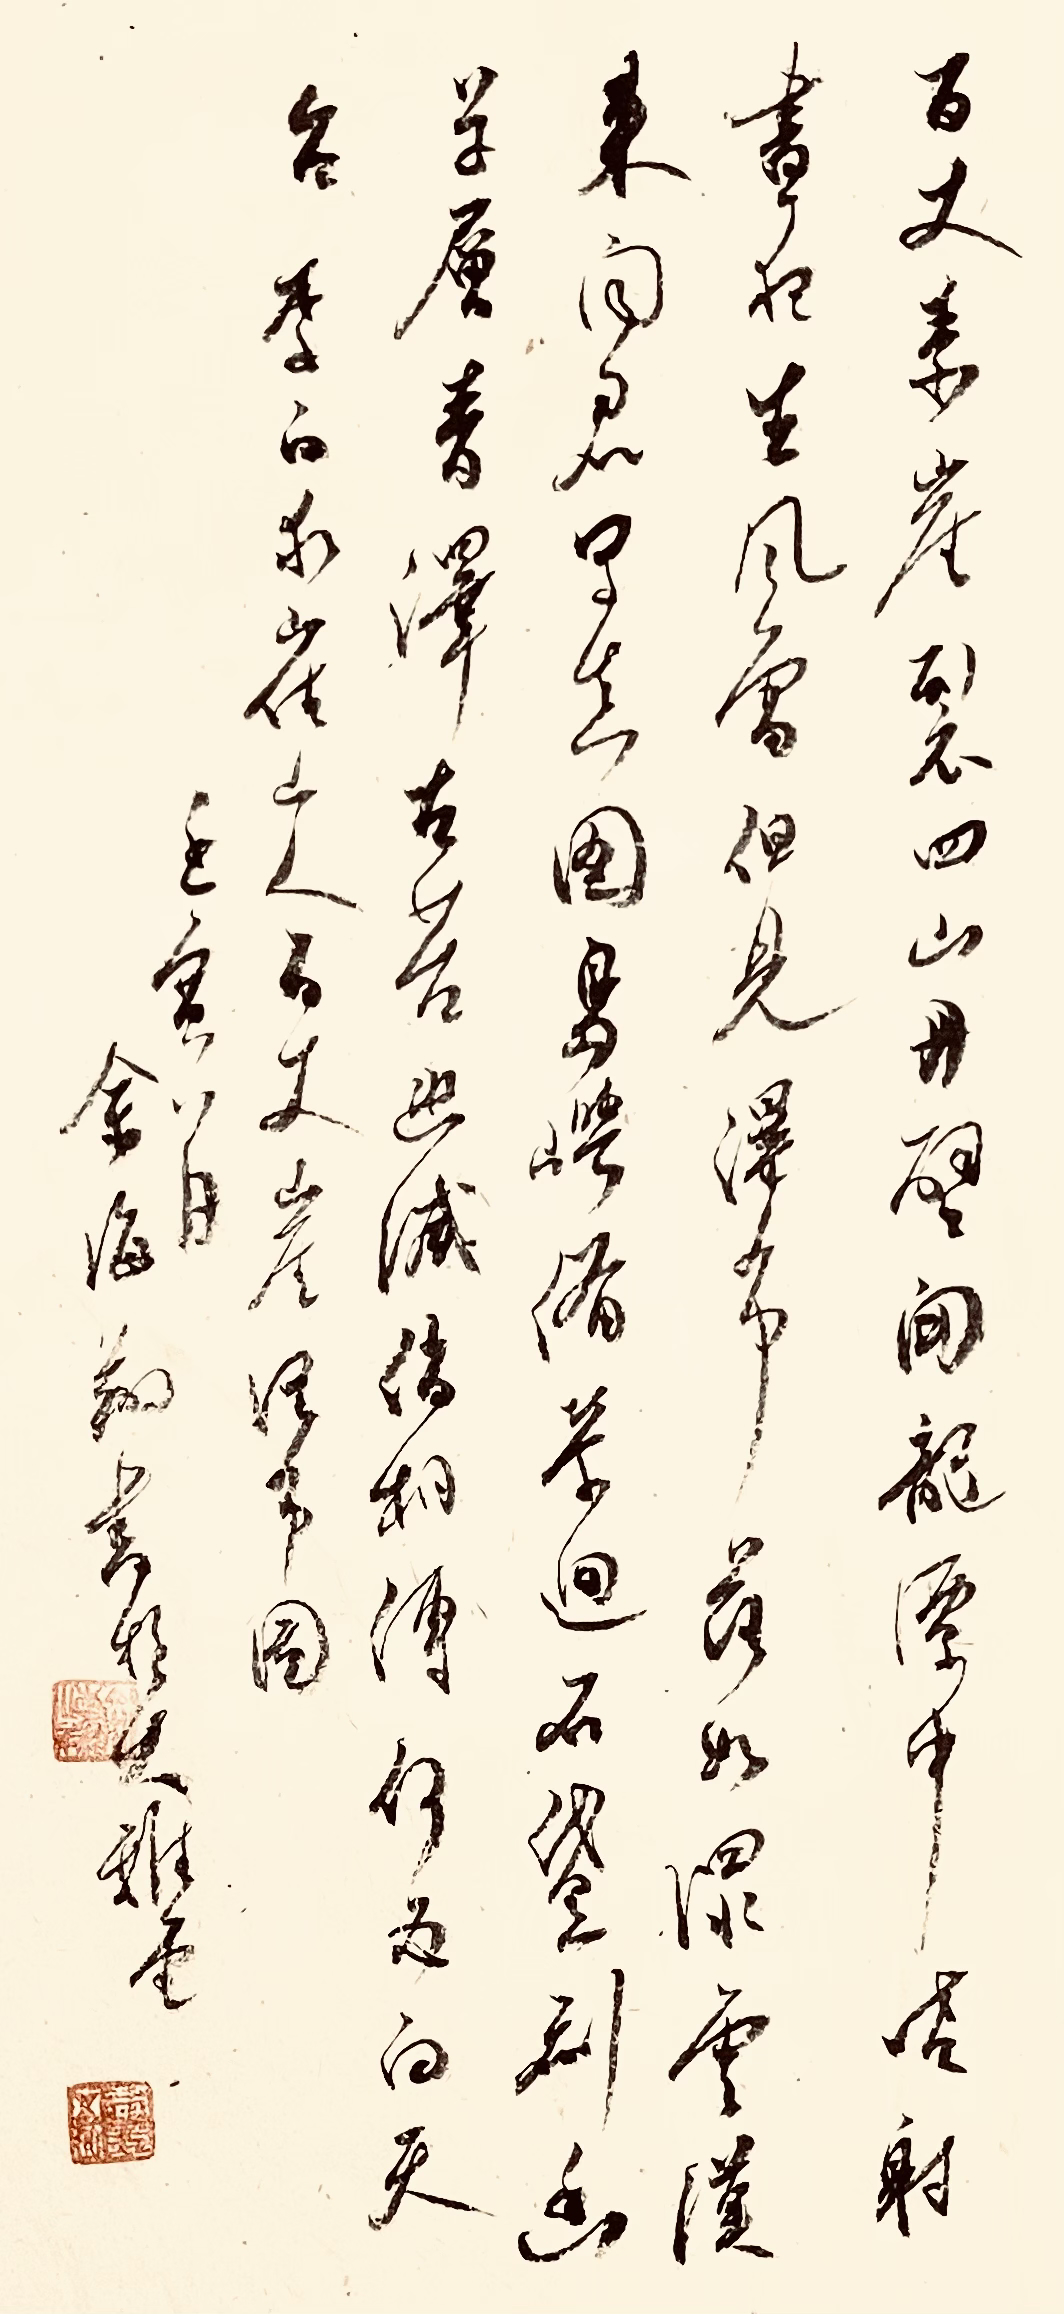 百丈素崖裂四山丹壁開龍潭中噴射
晝夜生風雷但見瀑布落如潨雲漢
來聞君寫真圖島嶼備縈迴石黛刷幽
草層青澤古苔幽緘倘相傳何必向天
台 李白求崔山人百丈崖瀑布圖
壬寅八月
余海翔書於